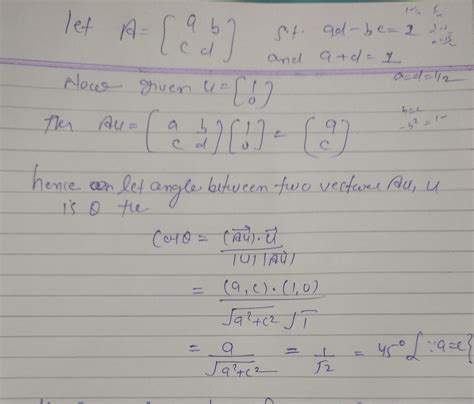 let A = [a b
c d] s.t. ad - bc = 1
and a + d = 1
a = d = 1/2
Now given u = [1
0]
b = c
-b² = 1 -
then Au = [a b
c d] [1
0] = [a
c]
hence let angle between two vectors Au, u
is θ the
Cosθ = (Au)·u / |u| |Au|
= (a, c)·(1, 0) / √a²+c² √1
= a / √a²+c² = 1/√2 = 45° {∵ a=c}